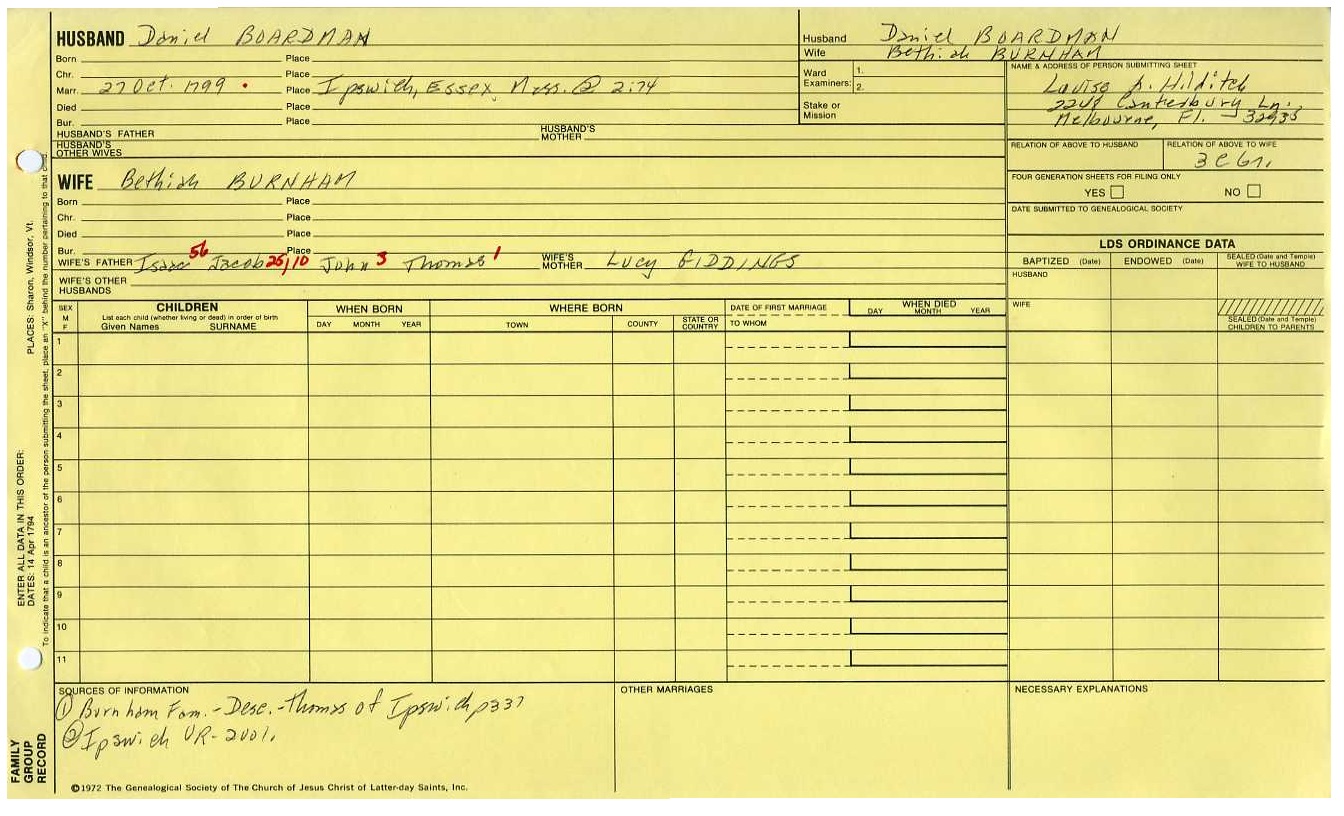 HUSBAND Daniel BOARDMAN
Born Place
Chr. Place
Marr. 27 Oct. 1799 . Place Ipswich, Essex, Mass. @ 2:74
Died Place
Bur. Place
HUSBAND'S FATHER HUSBAND'S MOTHER
HUSBAND'S OTHER WIVES
Husband Daniel BOARDMAN
Wife Bethiah BURNHAM
Ward Examiners: 1. 2.
Stake or Mission
NAME & ADDRESS OF PERSON SUBMITTING SHEET
Hilditch
Canterbury Ln.
Melbourne, Fl. 32935
RELATION OF ABOVE TO HUSBAND RELATION OF ABOVE TO WIFE
FOUR GENERATION SHEETS FOR FILING ONLY
YES NO
DATE SUBMITTED TO GENEALOGICAL SOCIETY
WIFE Bethiah BURNHAM
Born Place
Chr. Place
Died Place
Bur. Place
WIFE'S FATHER Isaac 56 Jacob 25,10 John 3 Thomas 1 WIFE'S MOTHER Lucy GIDDINGS
WIFE'S OTHER HUSBANDS
LDS ORDINANCE DATA
BAPTIZED (Date) ENDOWED (Date) SEALED (Date and Temple) WIFE TO HUSBAND
HUSBAND
WIFE
SEALED (Date and Temple) CHILDREN TO PARENTS
SEX M F
CHILDREN
List each child (whether living or dead) in order of birth
Given Names SURNAME
WHEN BORN
DAY MONTH YEAR
WHERE BORN
TOWN COUNTY STATE OR COUNTRY
DATE OF FIRST MARRIAGE
TO WHOM
WHEN DIED
DAY MONTH YEAR
1
2
3
4
5
6
7
8
9
10
11
SOURCES OF INFORMATION
① Burnham Fam. - Desc. - Thomas of Ipswich p337
② Ipswich VR - 2vol.
OTHER MARRIAGES
NECESSARY EXPLANATIONS
©1972 The Genealogical Society of The Church of Jesus Christ of Latter-day Saints, Inc.
FAMILY GROUP RECORD
ENTER ALL DATA IN THIS ORDER:
DATES: 14 Apr 1794 PLACES: Sharon, Windsor, Vt.
To indicate that a child is an ancestor of the person submitting the sheet, place an "X" behind the number pertaining to that child.